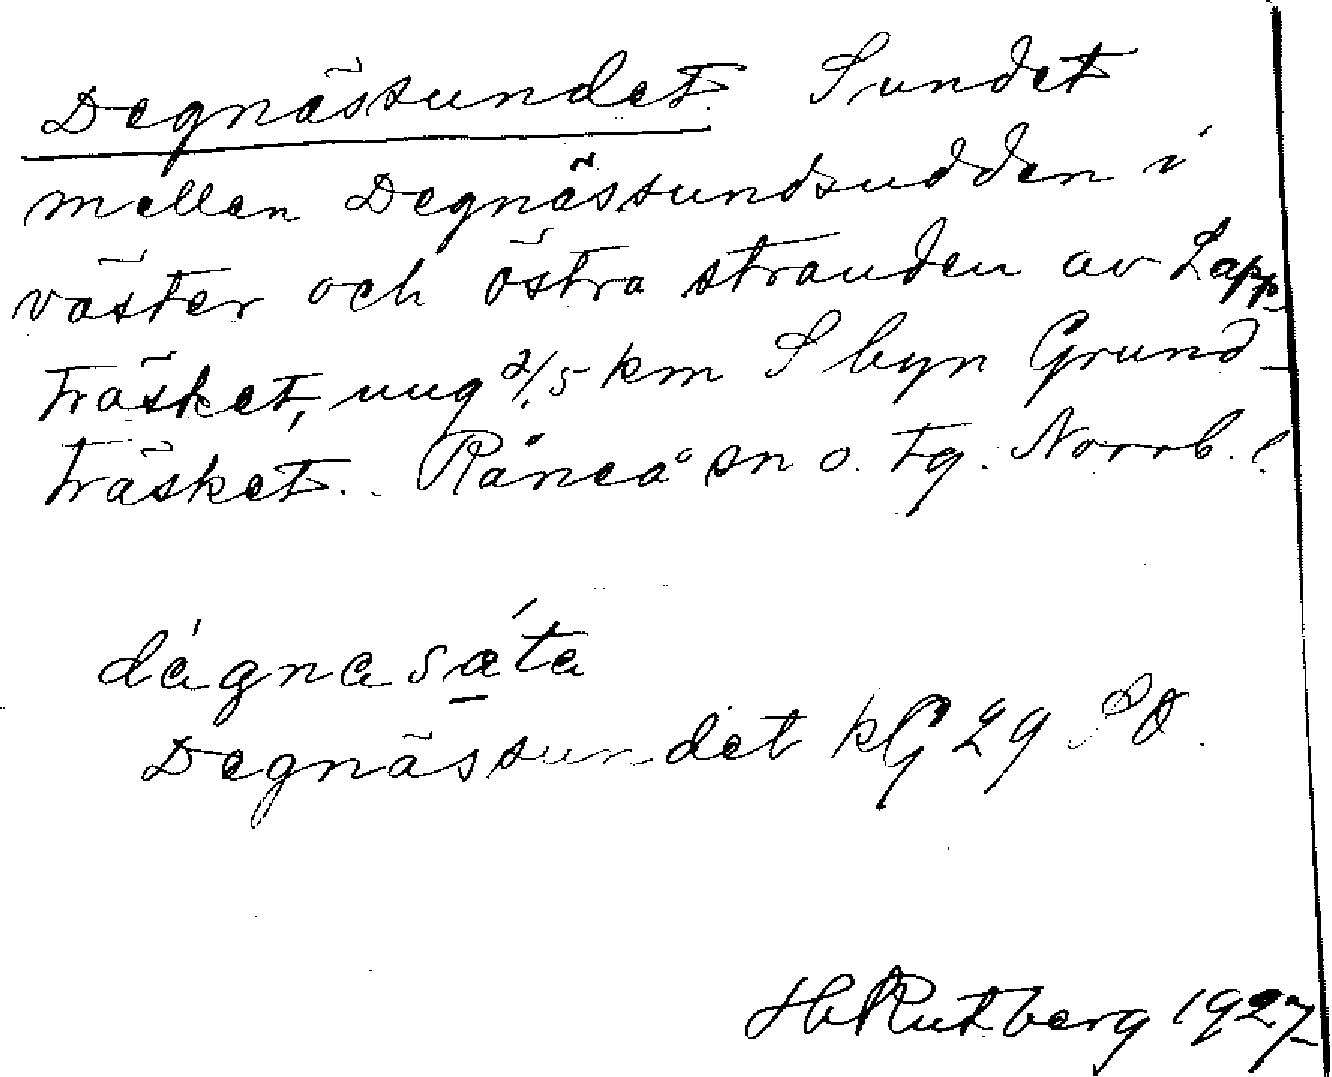 Degnässundet Sundet
mellan Degnässundsudden i
väster och östra stranden av Lapp
träsket, ung 2/5 km S byn Grund-
träsket. Råneå sn o. tg. Norrb. l
Degnässundet kG 29 SO
H Rutberg 1927